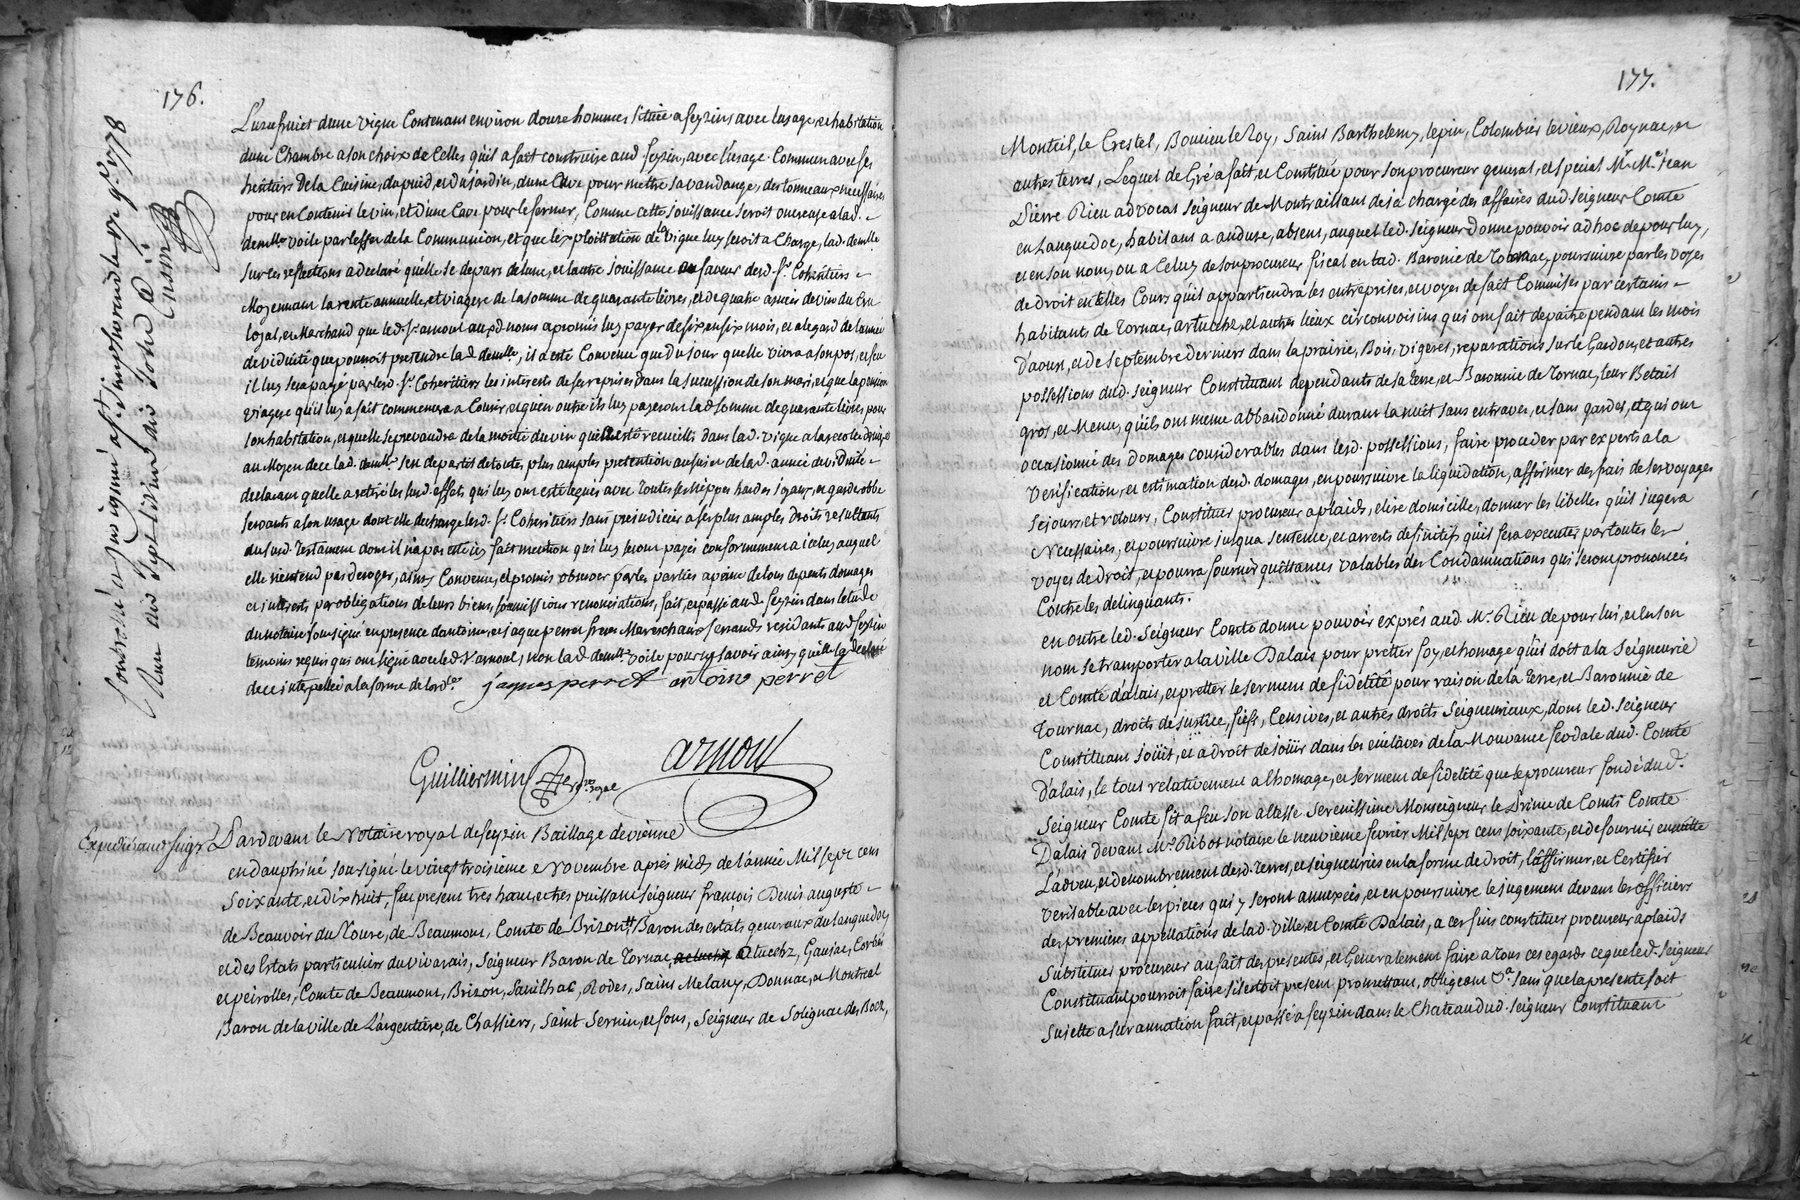 176.
L'usufruict d'une vigne Contenant environ douze hommes située a feyzins avec l'usage, et habitation
d'une Chambre a son choix de Celles qu'il a fait construire aud. feyzin, avec l'usage Commun avec ses
heritiers De la Cuisine, du puid, et du jardin, d'une Cuve pour mettre sa vandange, des tonneaux necessaires
pour en Contenir le vin, et d'une Cave pour le fermer, Comme cette jouissance seroit onereuse a lad.
demlle voile par l'effet de la Communion, et que l'exploittation de la vigne luy seroit a Charge, lad. demlle
sur ces reflections a declaré qu'elle se depart de l'une, et l'autre jouissance en faveur desd. srs Coheritiers
Moyennant la rente annuelle, et viagere de la somme de quarante livres, et de quatre annees de vin du Cru
loyal, et Marchand que led. sr. arnoul auxd. noms a promis luy payer de six en six mois, et a l'egard de l'annee
de viduité que pourroit pretendre lad. demlle, il a esté Convenu que du jour quelle vivra a son pos, et feu
il luy sera payé par lesd. srs Coheritiers les interests de ses reprises dans la succession de son mari, et que la pension
viagere qu'il luy a fait commencera a Courir, et qu'en outre ils luy payeront lad. somme de quarante livres pour
son habitation, et quelle se prevaudra de la moitié du vin qui a esté recueilli dans lad. vigne a la recolte derniere
au Moyen de ce lad. demlle s'en departit de toute, plus amples pretention au sujet de lad. année de viduité
declarant quelle a retiré les susd. effets qui luy ont esté legués avec toutes ses Nippes hardes joyaux, et garderobbe
servants a son usage dont elle decharge lesd. srs Coheritiers sans prejudicier a ses plus amples droits resultants
du susd. testament dont il n'a pas esté icy fait mention qui luy seront payés conformement a iceluy auquel
elle n'entend pas deroger, ainsy Convenu, et promis observer par les parties a peine de tous depents domages
et interests par obligations de leurs biens, soumissions renonciations, fait, et passé aud. feyzin dans l'etude
du notaire soussigné en presence d'antoine, et jaque perret freres Mareschaux ferrands residants aud. feyzin
temoins requis qui ont signé avec led. sr arnoul, non lad. demlle voile pour ne savoir ainsy qu'elle l'a declaré
de ce interpellée a la forme de l'ordce.
jaques perret antoine perret
Guilliermin nre royal
arnoul
Controllé
Cusin
Expedié aud. seigr
Pardevant le Notaire royal de feyzin Baillage de vienne
en dauphiné soussigné le vingt troisieme Novembre après midy de l'année Mil sept cent
soixante, et dixhuit, fut present tres haut, et tres puissant seigneur françois Denis auguste
de Beauvoir du Roure, de Beaumont, Comte de Brizon, Baron des estats generaux du languedoc
et des Estats particuliers du vivarais, Seigneur Baron de Tornac, atuechz, Gaujac, Corbes
et peirolles, Comte de Beaumont, Brizon, Sanilhac, Rodes, Saint Melany, Donnac, et Montreal
Baron de la ville de L'argentiere, de Chassiers, Saint Sernin, et fons, Seigneur de Solignac des Bocx,
177.
Monteil, le Crestel, Boucieu le Roy, Saint Barthelemy, lepin, Colombier le vieux, Roynac, et
autres terres, Lequel de Gré a fait, et Constitué pour son procureur general, et special Mr. Me. Jean
Pierre Rieu advocat seigneur de Montvaillant desja chargé des affaires dud. seigneur Comte
en Languedoc, habitant a anduse, absent, auquel led. seigneur donne pouvoir ad hoc de pour luy,
et en son nom, ou a Celuy de son procureur fiscal en lad. Baronie de Tornac, poursuivre par les voyes
de droit en telles Cours qu'il appartiendra les entreprises, et voyes de fait Commises par certains
habitants de Tornac, atuechz, et autres lieux circonvoisins qui ont fait depaitre pendant les mois
d'aoust, et de septembre derniers dans la prairie, Bois, vigeres, reparations sur le Gardon, et autres
possessions dud. seigneur Constituant dependants de sa terre, et Baronnie de Tornac, leur Betail
gros, et Menu, qu'ils ont meme abbandonné durant la nuit sans entraves, et sans gardes, et qui ont
occasionné des domages considerables dans lesd. possessions, faire proceder par experts a la
verification, et estimation desd. domages, en poursuivre la liquidation, affirmer des frais de ses voyages
sejours, et retours, Constituer procureur a plaids, elire domicille, donner les libelles qu'il jugera
Necessaires, et poursuivre jusqu'a sentence, et arrests definitifs qu'il fera executer par toutes les
voyes de droit, et pourra fournir quittances valables des Condamnations qui seront prononcées
Contre les delinquants.
en outre led. Seigneur Comte donne pouvoir exprés aud. Mr. Rieu de pour lui, et en son
nom se transporter a la ville D'alais pour pretter foy, et homage qu'il doit a la Seigneurie
et Comté d'alais, et pretter le serment de fidelité pour raison de la Terre, et Baronnie de
Tournac, droits de justice, fiefs, Censives, et autres droits Seigneuriaux, dont led. Seigneur
Constituant joüit, et a droit de joüir dans les enclaves de la Mouvance feodale dud. Comté
D'alais, le tout relativement a l'homage, et serment de fidelité que le procureur fondé dud.
Seigneur Comte fit a feu son altesse Serenissime Monseigneur le Prince de Conti Comte
D'alais devant Me. Ribot notaire le neuvieme fevrier Mil sept cent soixante, et de fournir ensuitte
L'adveu, et denombrement desd. terres, et seigneuries en la forme de droit, l'affirmer, et Certifier
veritable avec les pieces qui y seront annexées, et en poursuivre le jugement devant les officiers
des premieres appellations de lad. ville, et Comté D'alais, a ces fins constituer procureur a plaids
Substituer procureur au fait des presentes, et Generalement faire a tous ces egards ce que led. seigneur
Constituant pourroit faire s'il estoit present promettant, obligeant &a. sans que la presente soit
sujette a surannation fait, et passé a feyzin dans le Chateau dud. seigneur Constituant